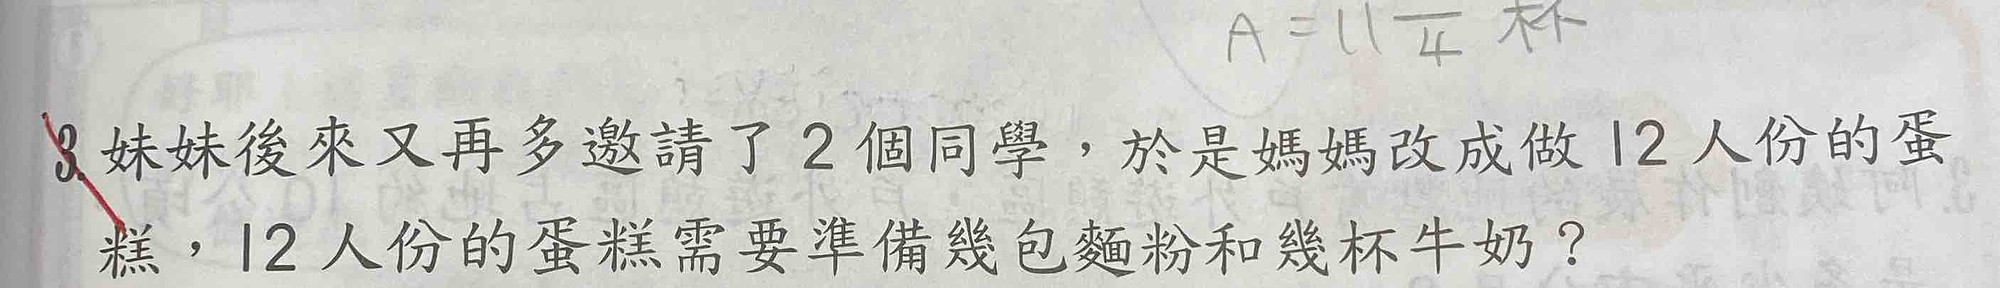 A = 11 1/4 杯
3. 妹妹後來又再多邀請了 2 個同學，於是媽媽改成做 12 人份的蛋
糕，12 人份的蛋糕需要準備幾包麵粉和幾杯牛奶？